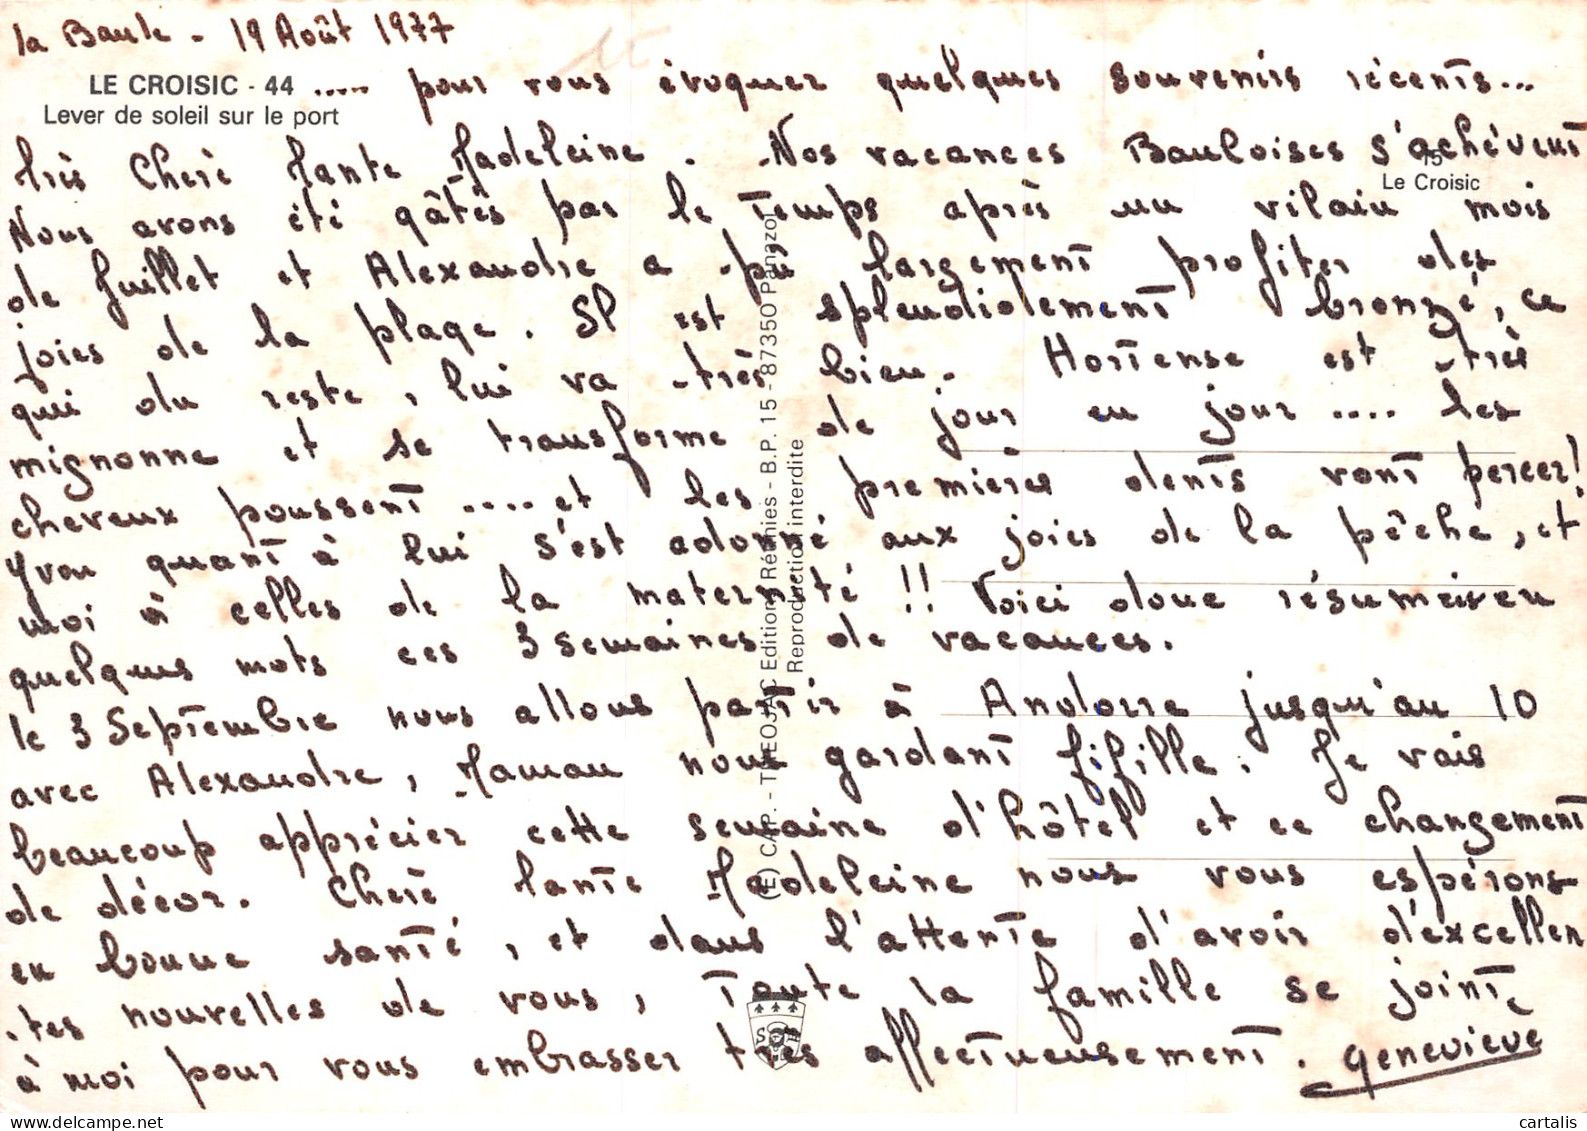 la Baule - 19 Août 1977
LE CROISIC - 44 ..... pour vous évoquer quelques souvenirs récents...
Lever de soleil sur le port
très Chère Tante Madeleine. Nos vacances Bauloises s'achèvent
15
Le Croisic
Nous avons été gâtés par le temps après un vilain mois
de Juillet et Alexandre a pû largement profiter des
joies de la plage. Il est splendidement bronzé, ce
qui du reste, lui va très bien. Hortense est très
mignonne et se transforme de jour en jour .... les
cheveux poussent .... et les premières dents vont percer!
Yvon quant à lui s'est adonné aux joies de la pêche, et
moi à celles de la maternité !! Voici donc résumé en
quelques mots ces 3 semaines de vacances.
le 3 Septembre nous allons partir à Andorre jusqu'au 10
avec Alexandre, Maman nous gardant fifille. Je vais
beaucoup apprécier cette semaine d'hôtel et ce changement
de décor. Chère tante Madeleine nous vous espérons
en bonne santé, et dans l'attente d'avoir d'excellen
.tes nouvelles de vous, Toute la famille se joint
à moi pour vous embrasser très affectueusement. Geneviève
(E) CAP. - THEOJAC Editions Réunies - B.P. 15 - 87350 Panazol
Reproduction interdite
delcampe.net
cartalis